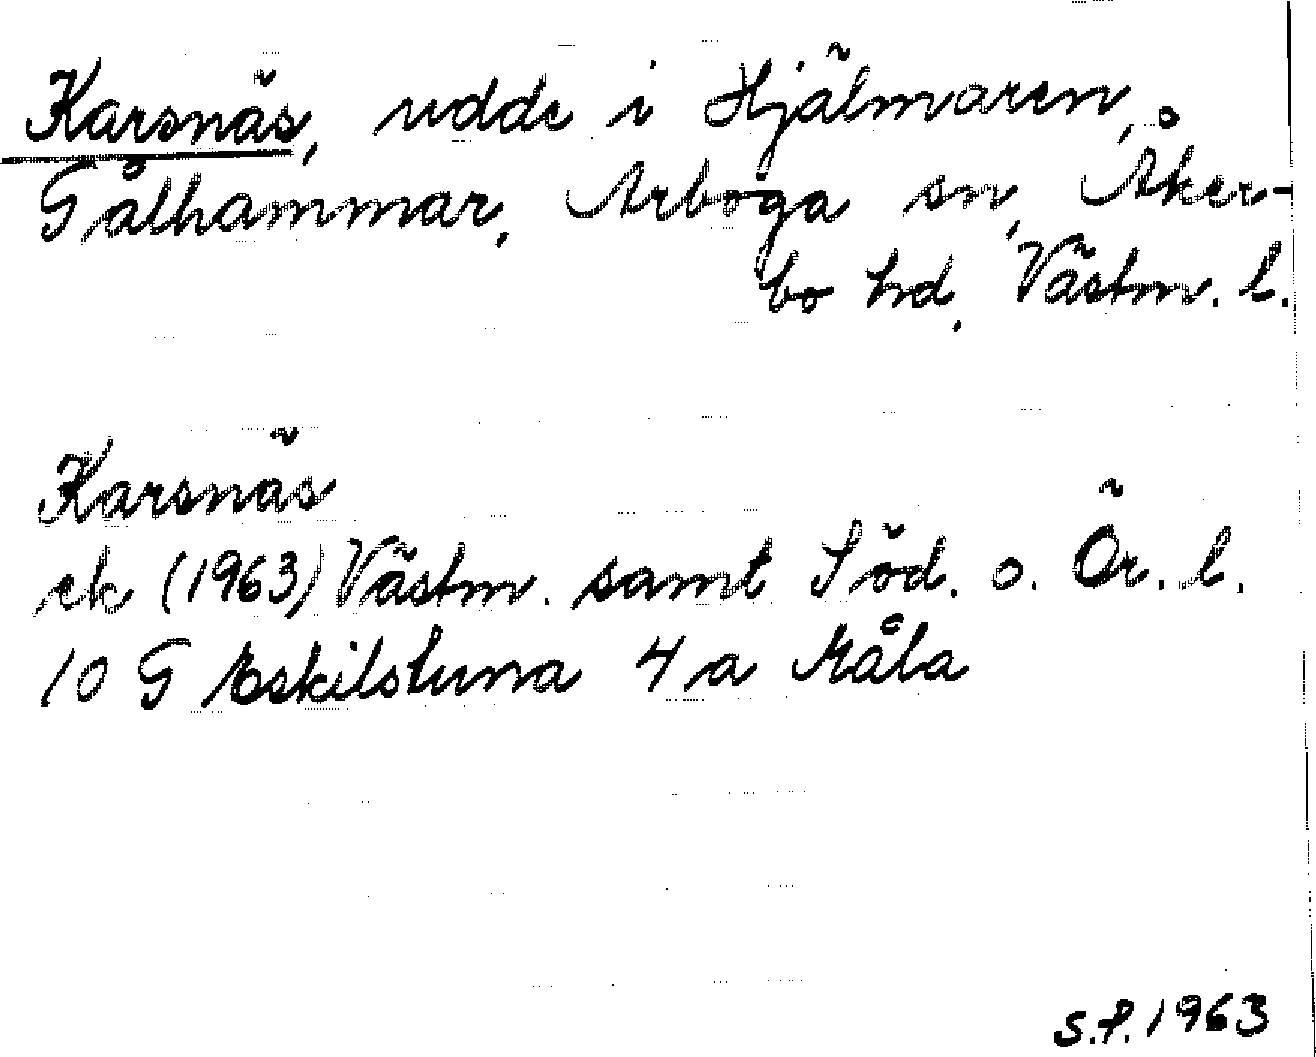 Karsnäs, udde i Hjälmaren,
Gålhammar, Arboga sn, Åker-
bo hd, Västm. l.
Karsnäs
ek (1963) Västm. samt Söd. o. Ör. l.
10 G Eskilstuna 4 a Måla
S.P. 1963